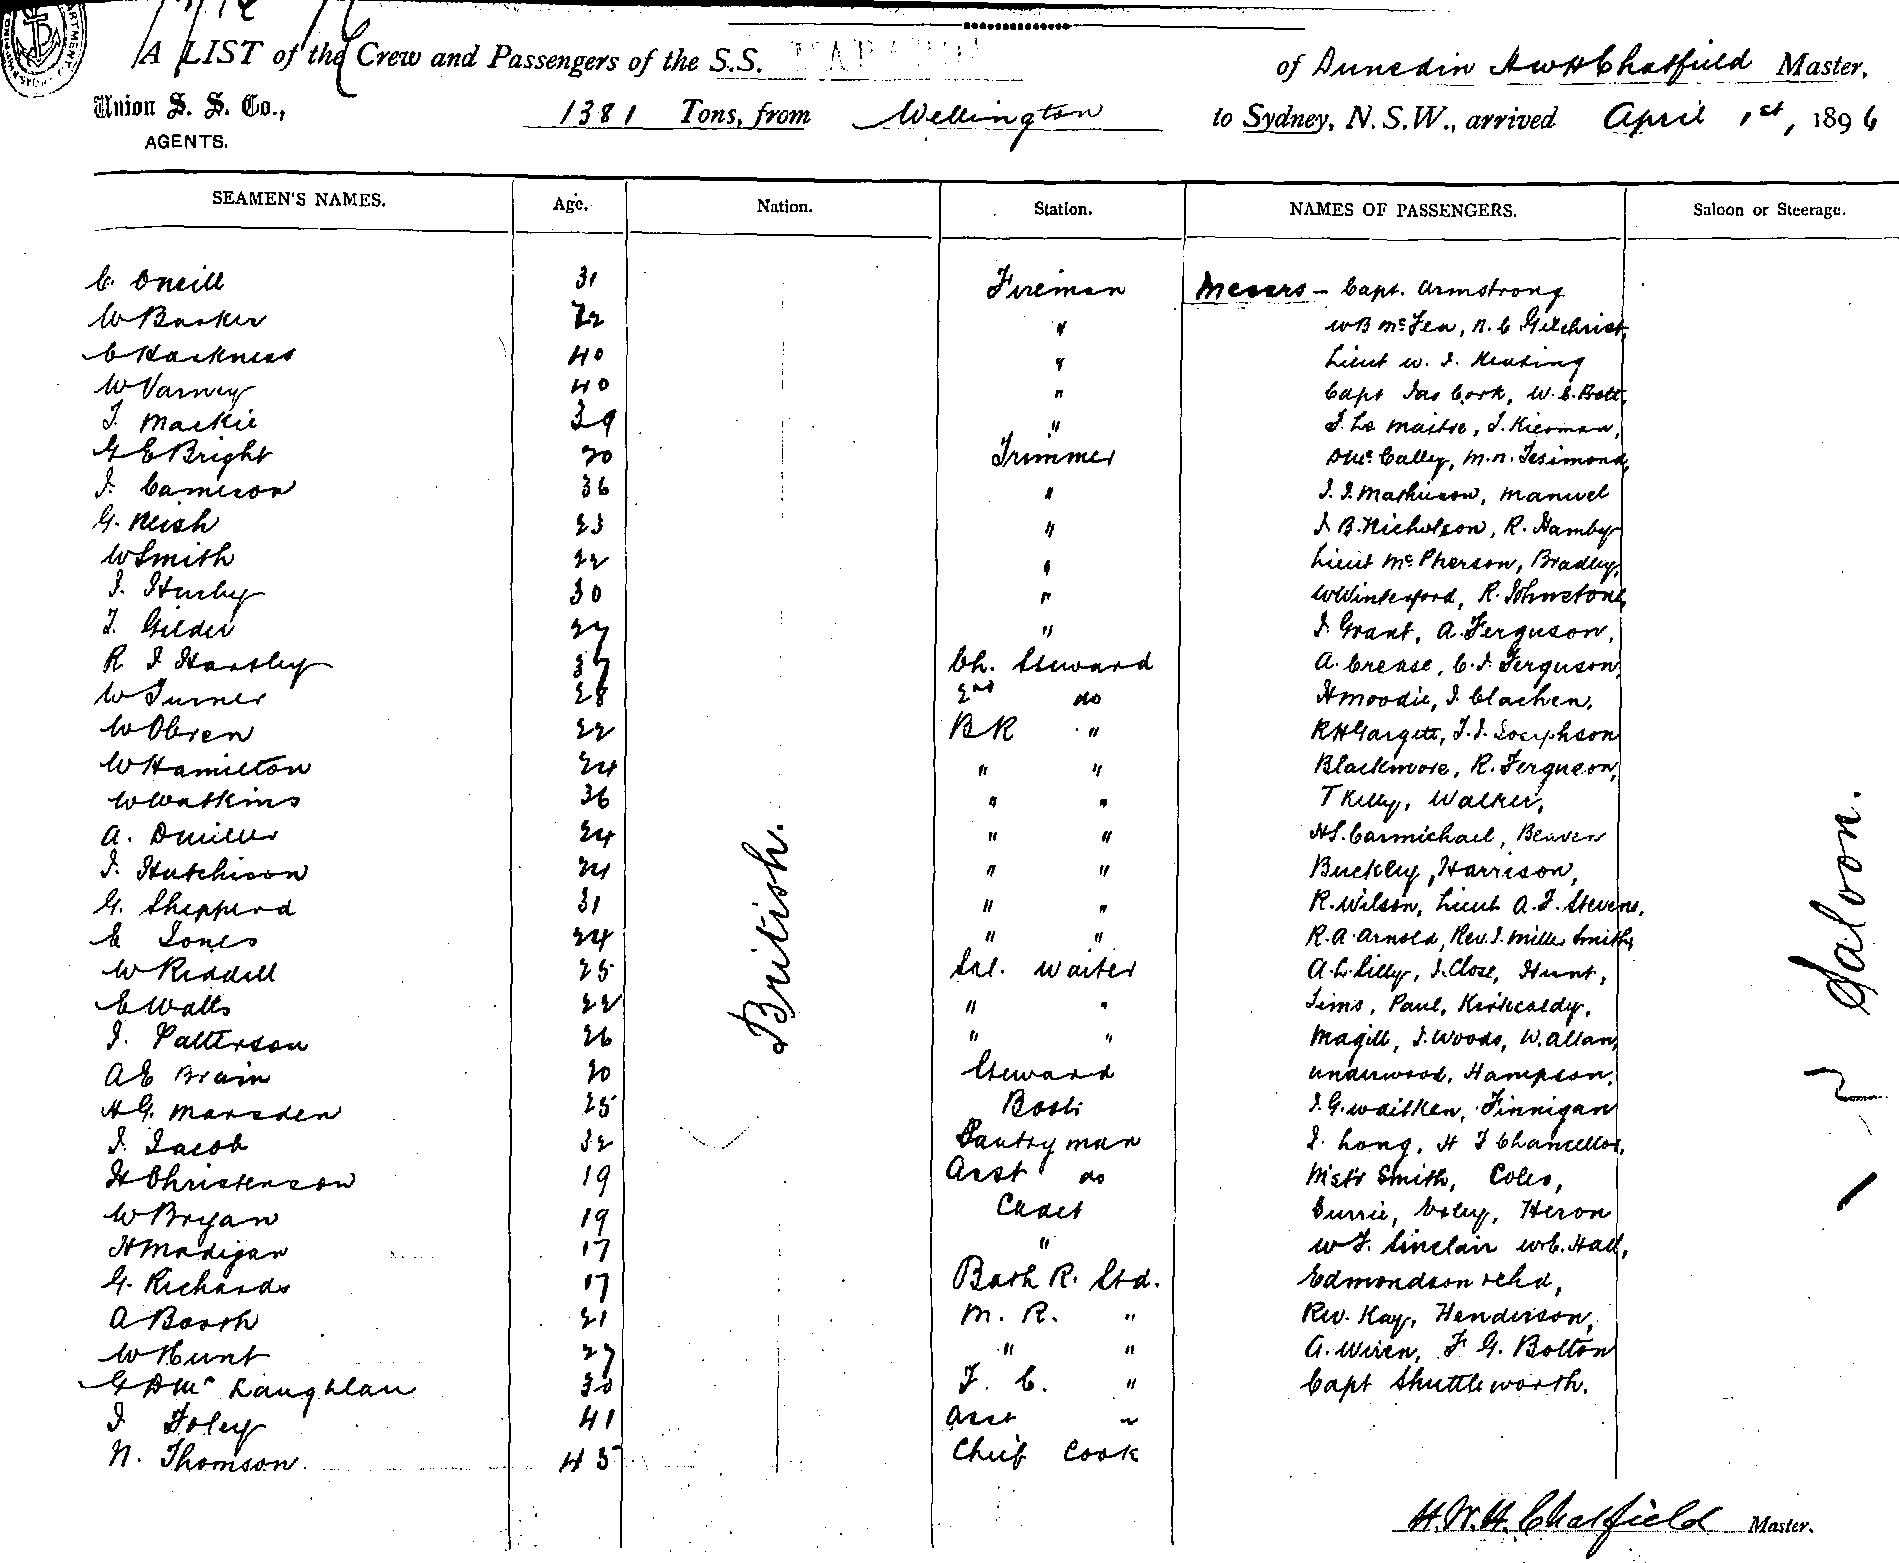 A LIST of the Crew and Passengers of the S.S. of Dunedin H W H Chatfield Master,
Union S. S. Co., 1381 Tons, from Wellington to Sydney, N.S.W., arrived April 1st, 1896
AGENTS.
SEAMEN'S NAMES. Age. Nation. Station. NAMES OF PASSENGERS. Saloon or Steerage.
C. Oneill 31 Fireman Messrs - Capt. Armstrong
W Barker 22 " W B McFea, N. C Gilchrist,
C Harkness 40 " Lieut W. J. Keating
W Varney 40 " Capt Jas Cork, W. E. Bott,
J. Mackie 39 " J. Le Maitre, J. Kiernan,
G E Bright 20 Trimmer McCalley, M. N. Tesimond,
J. Cameron 36 " J. J. Mathieson, Manuel
G. Neish 23 " J B. Nicholson, R. Hamby
W Smith 22 " Lieut McPherson, Bradley,
J. Hurley 30 " W Winterford, R. Johnstone,
J. Gilder 27 " J. Grant, A. Ferguson,
R J Hartley 37 Ch. Steward A. Crease, C. J. Ferguson,
W Turner 28 2nd do H Moodie, J. Clachen,
W Obren 22 B R " R H Gargett, J. J. Josephson
W Hamilton 24 " " Blackmore, R. Ferguson,
W Watkins 36 " " T Kelly, Walker,
A. D Miller 24 " " H S. Carmichael, Beaver
J. Hutchison 24 " " Buckley, Harrison,
G. Shepperd 31 " " R. Wilson, Lieut A. J. Stevens,
E Jones 24 " " R. A. Arnold, Rev. J. Miller Smith,
W Riddell 25 Sal. Waiter A. L. Lilly, J. Close, Hunt,
E Watts 22 " " Sims, Paul, Kirkcaldy,
J. Patterson 26 " " Magill, J. Woods, W. Allan,
A E Brain 20 Steward Underwood, Hampson,
H G. Marsden 25 Boots J. G. Waitken, Finnigan
J. Jacob 32 Pantryman J. Long, H J Chancellor,
H Christenson 19 Asst do Mstr Smith, Coles,
W Bryan 19 Cadet Currie, Coley, Heron
H Madigan 17 " W J. Sinclair W. C. Hall,
G. Richards 17 Bath R. Std. Edmondson
A Booth 21 M. R. " Rev. Kay, Henderson,
W Hunt 27 " " A. Wiren, F G. Bolton
G A Mc Laughlan 30 F. C. " Capt Shuttleworth.
J Foley 41 Asst "
N. Thomson 45 Chief Cook
British.
Saloon.
H. W. H. Chatfield Master.